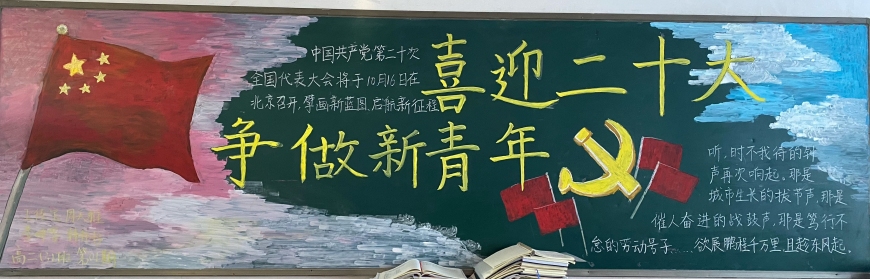 中国共产党第二十次
全国代表大会将于10月16日在
北京召开,擘画新蓝图,启航新征程
喜迎二十大
争做新青年
听,时不我待的钟
声再次响起,那是
城市生长的拔节声,那是
催人奋进的战鼓声,那是笃行不
怠的劳动号子……欲展鹏程千万里,且趁东风起。